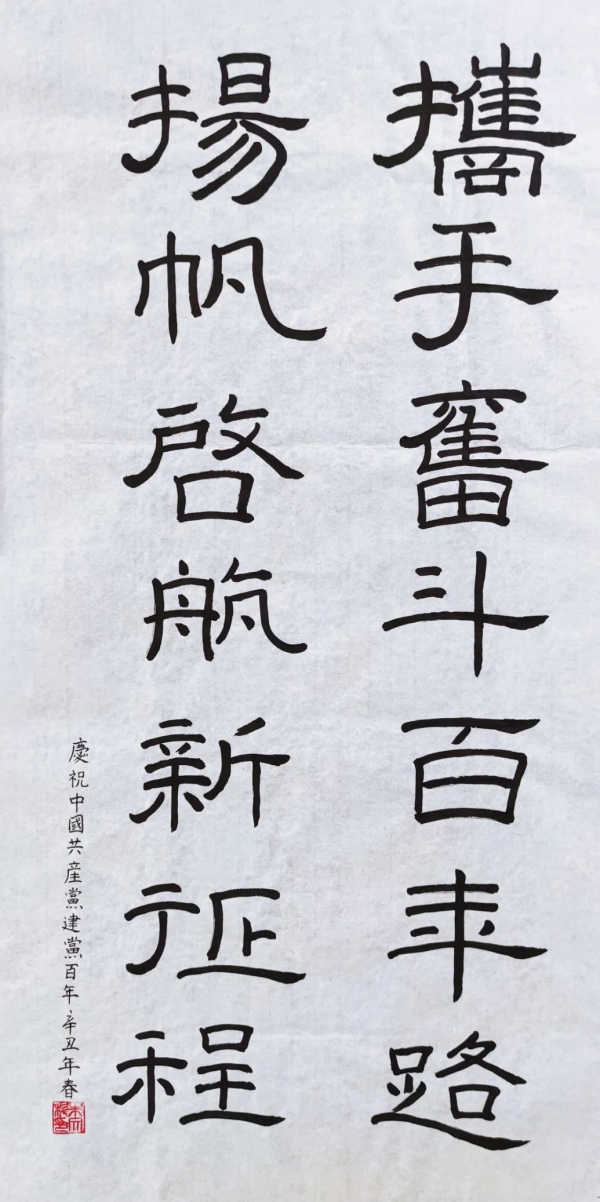 攜手奮斗百年路
揚帆啓航新征程
慶祝中國共産黨建黨百年辛丑年春